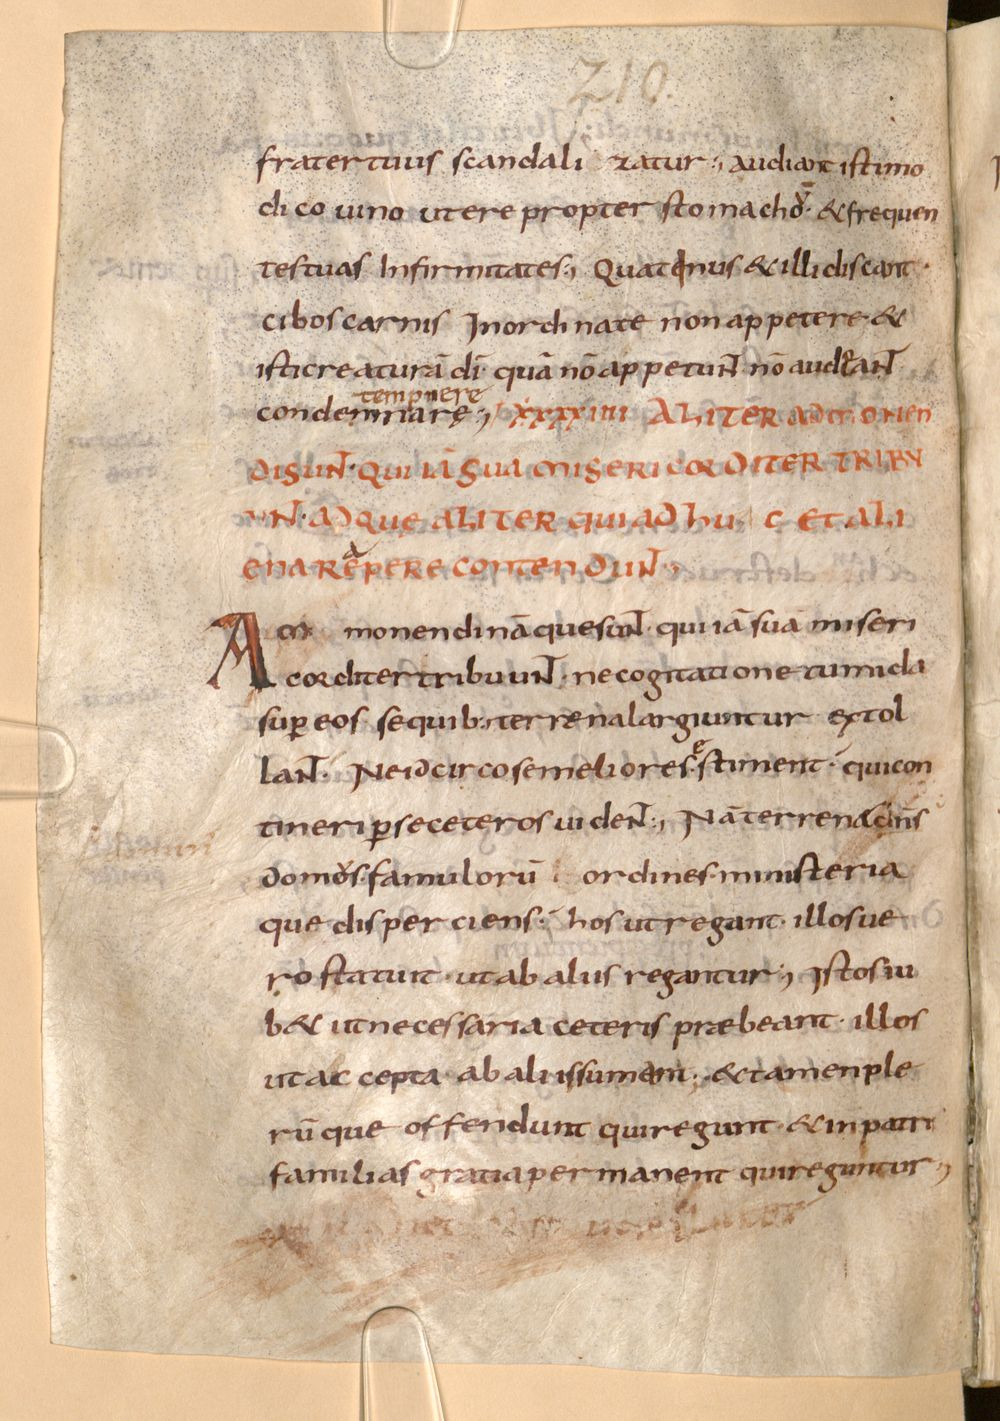 210.
frater tuus scandali zatur ; audiant isti mo
dico uino utere propter stomachō · & frequen
tes tuas Infirmitates ; Quatenus & illi discant ·
cibos carnis Inordinate non appetere · &
isti creaturā dī · quā nō appetunt nō audeant
tempnere
condemnare ; XXXXIIII ALITER ADMONEN
DI SUNT · QUI IĀ SUA MISERICORDITER TRIBU
UNT · ADQUE ALITER QUI ADHUC ET ALI
a
ENA REPERE CONTENDUNT ;
Am monendi nāque sunt · qui iā suā miseri
corditer tribuunt · ne cogitatione tumida
super eos · se quib: terrena largiuntur extol
e
lant · Ne idcirco se meliores stiment · qui con
tineri per se ceteros uident ; Nā terrenae dn̄s
domos famulorū ordines ministeria
que disperciens · hos ut regant · illos ue
ro statuit · ut ab aliis regantur ; Istos iu
b& ut necessaria ceteris præbeant · illos
ut accepta ab aliis sumant · & tamen ple
rūque offendunt qui regunt · & in patri
familias gratia permanent qui reguntur ;